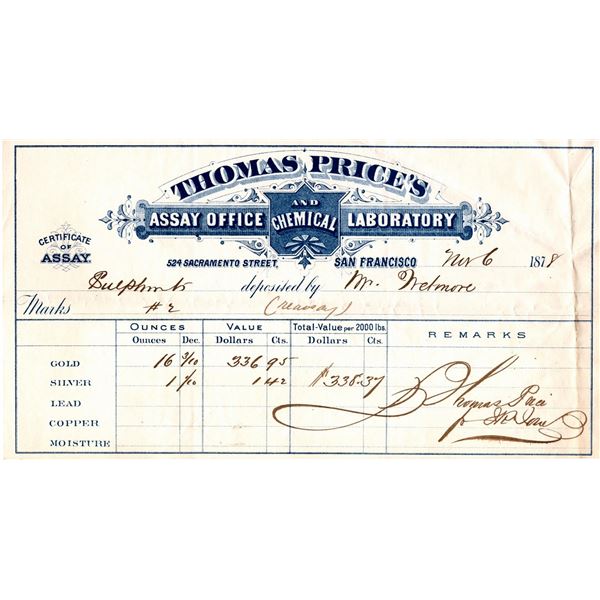 THOMAS PRICE'S
ASSAY OFFICE AND CHEMICAL LABORATORY
CERTIFICATE OF ASSAY.
524 SACRAMENTO STREET, SAN FRANCISCO Nov 6 1878
Sulphurets deposited by Mr. Wetmore
Marks # 2 (reassay)
OUNCES VALUE Total-Value per 2000 lbs. REMARKS
Ounces Dec. Dollars Cts. Dollars Cts.
GOLD 16 3/10 336 95
SILVER 1 1/10 1 42 $338.37
LEAD Thomas Price
COPPER
MOISTURE